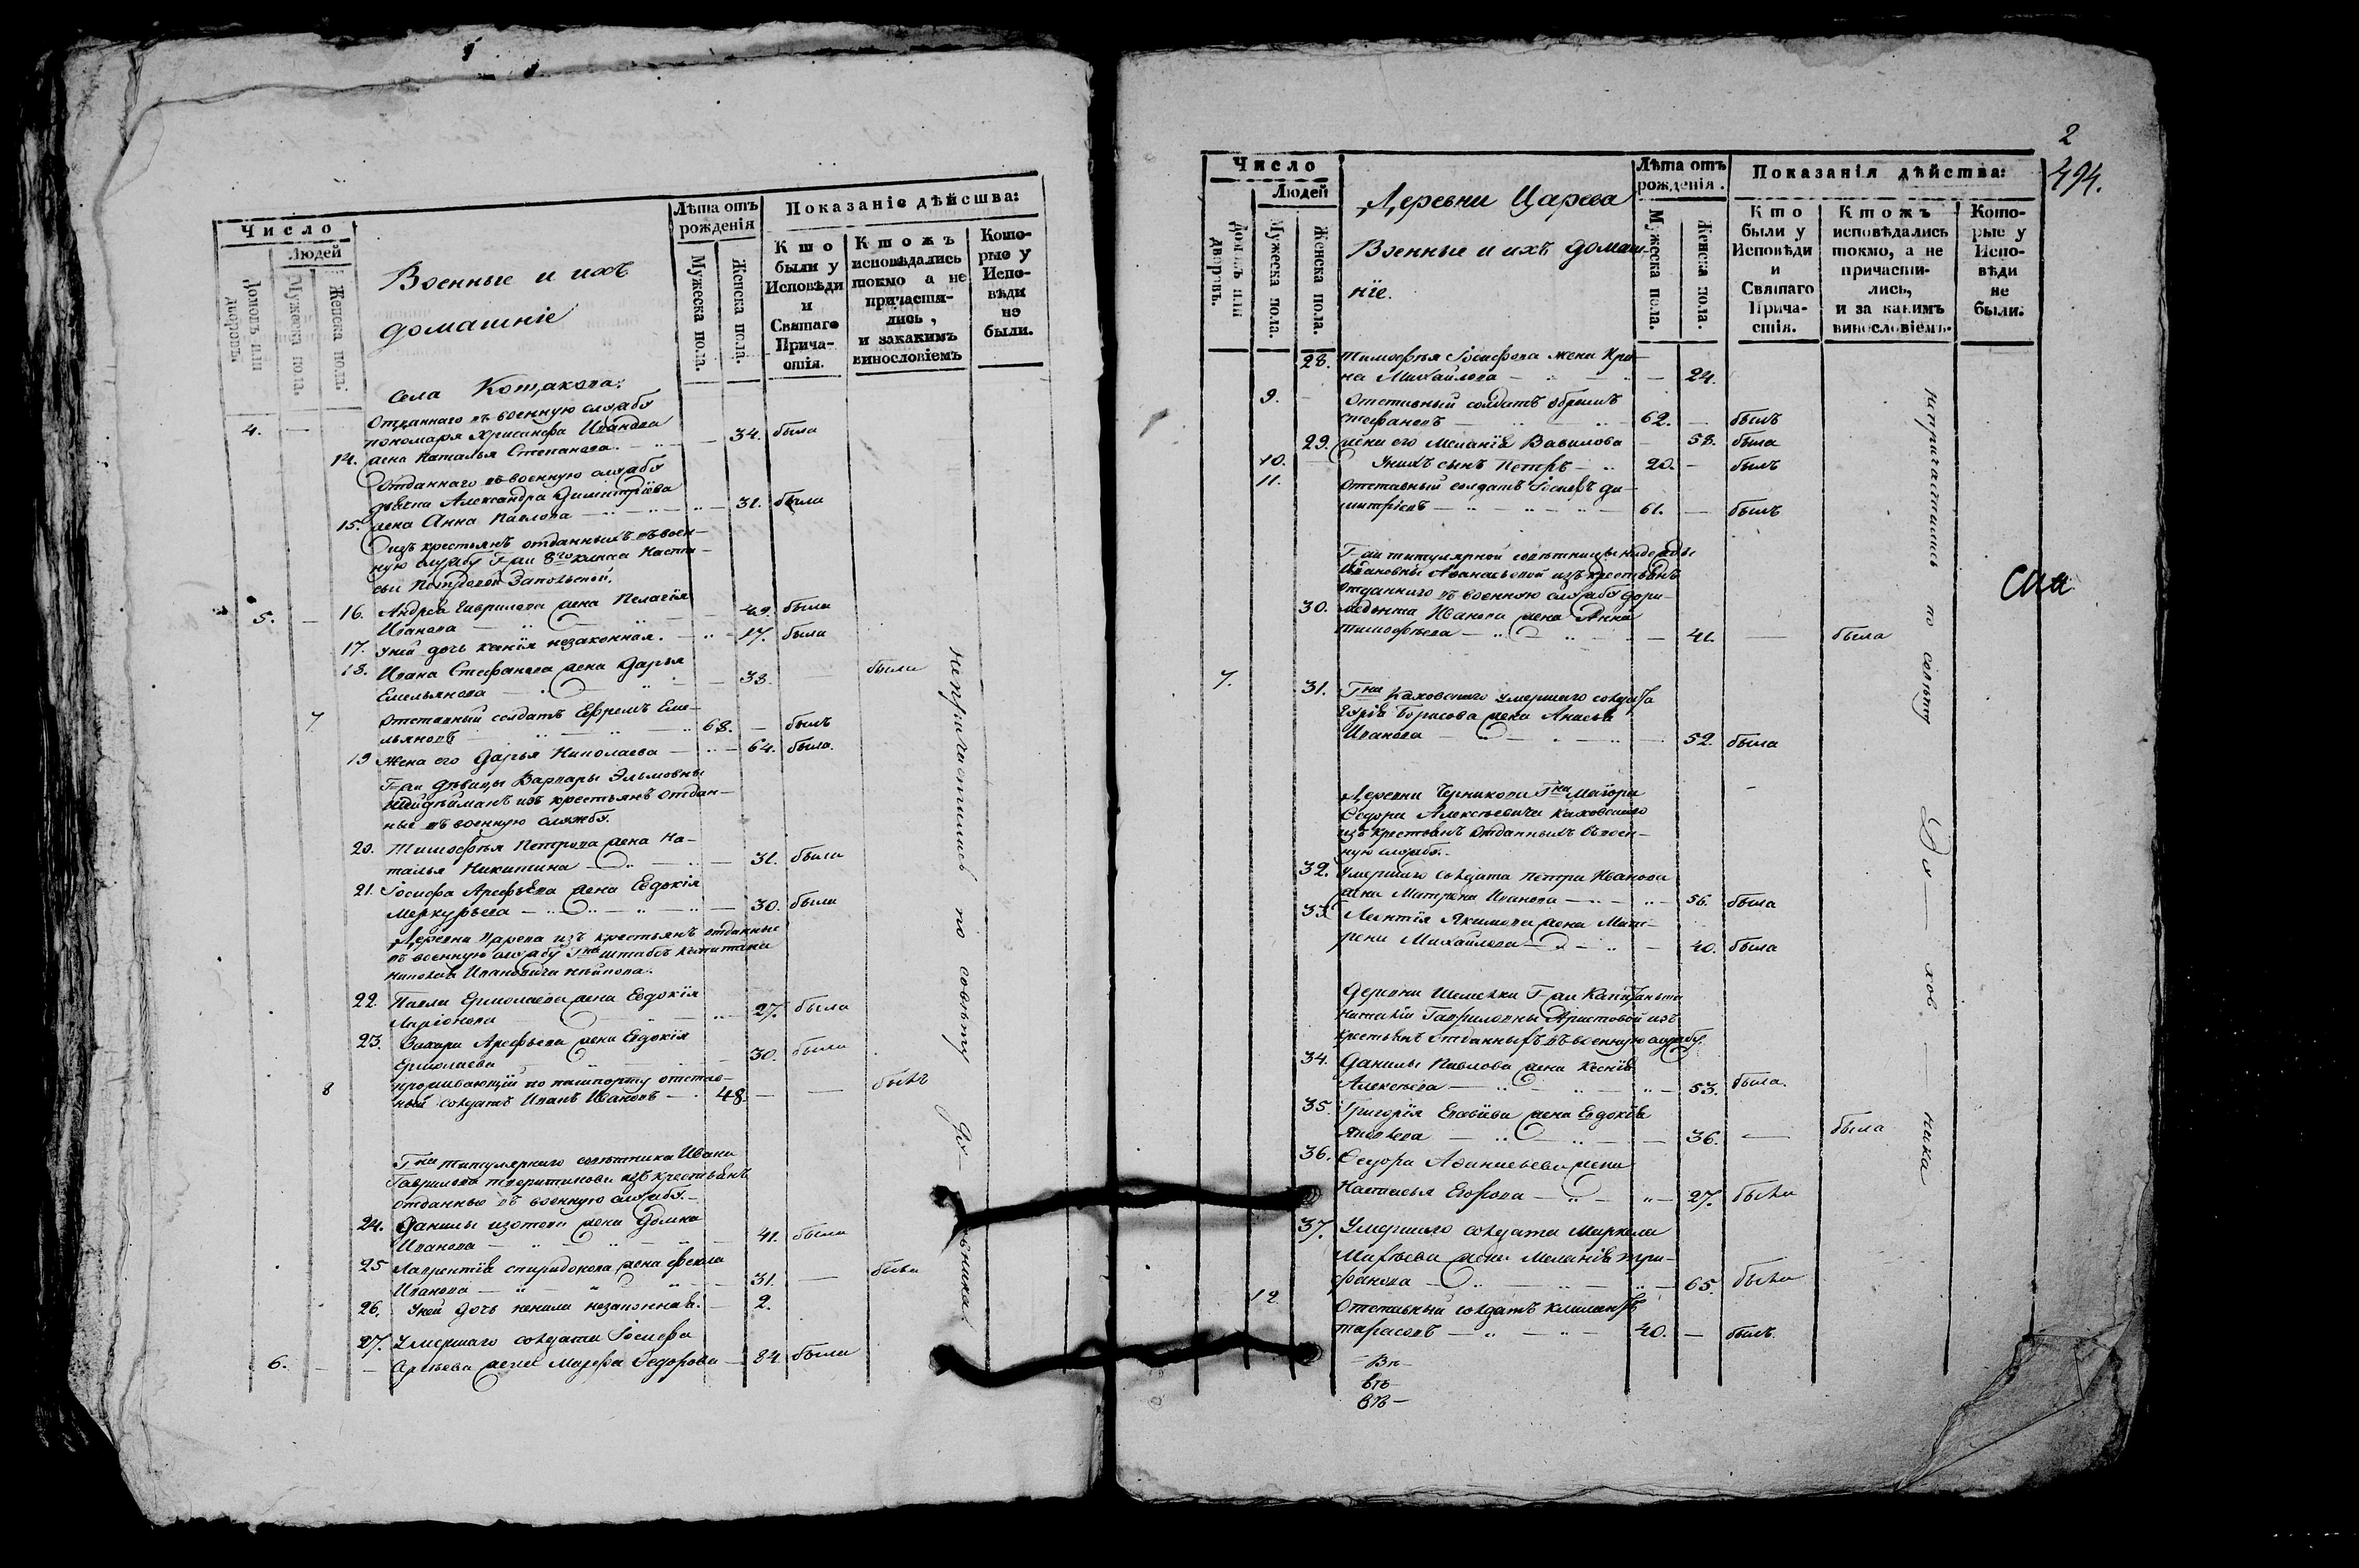 Число
Людей
Домовъ или дворовъ.
Мужеска пола.
Женска пола.
Военные и ихъ
домашніе
Лѣта отъ
рожденія
Мужеска пола.
Женска пола.
Показаніе дѣйства:
Кто
были у
Исповѣди
и
Святаго
Прича-
стія.
Ктожъ
исповѣдались
токмо а не
причасти-
лись,
и закакимъ
винословіемъ
Кото-
рые у
Испо-
вѣди
не
были.
села Котакова:
4. —
Отданнаго въ военную службу
пономаря Хрисанфа Иванова
14. жена Наталья Степанова. — 34. была
Отданнаго въ военную службу
Александра Димитріева
15. жена Анна Павлова — 31. была
изъ крестьянъ отданныхъ въ воен-
ную службу Г-жи 8го класса Наста-
сьи Петровой Запольской.
5. — 16. Андрея Гаврилова жена Пелагія
Иванова — 49. была
17. у ней дочь Ксенія незаконная. — 17. была
18. Ивана Стефанова жена Дарья
Емельянова — 33. была
7. Отставный солдатъ Ефремъ Еме-
льяновъ — 68. — былъ
19 Жена его Дарья Николаева — 64. была.
Г-жи дѣвицы Варвары
изъ крестьянъ отдан-
ные въ военную службу.
20. Тимофея Петрова жена На-
талья Никитина — 31. была
21. Іосифа Арефьева жена Евдокія
Меркурьева — 30. была
Деревни Царева изъ крестьянъ отданные
въ военную службу Гна штабсъ капитана
Николая Ивановича
22. Павла Ермолаева жена Евдокія
Ларіонова — 27. была
23. Захара Арефьева жена Евдокія
Ермолаева — 30. была
8 проживающій по пашпорту отстав-
ный солдатъ Иванъ Ивановъ — 48. — — былъ
Гна титулярнаго совѣтника Ивана
Гаврилова изъ крестьянъ
отданные въ военную службу. —
24. Данилы Изотова жена Домна
Иванова — 41. была
25 Лаврентія Спиридонова жена Фекла
Иванова — 31. — была
26. У ней дочь Ненила незаконная. — 2.
27. Умершаго солдата Іосифа
6. — Сергѣева жена Марфа Федорова — 84. была
непричастились по совѣту Ду—
—вника.
2
494.
Число
Людей
Домовъ или дворовъ.
Мужеска пола.
Женска пола.
Деревни Царева
Военные и ихъ домаш-
ніе.
Лѣта отъ
рожденія.
Мужеска пола.
Женска пола.
Показанія дѣйства:
Кто
были у
Исповѣди
и
Святаго
Прича-
стія.
Ктожъ
исповѣдались
токмо, а не
причасти-
лись,
и за какимъ
винословіемъ.
Кото-
рые у
Испо-
вѣди
не
были.
28. Тимофея Іосифова жена Ири-
на Михайлова — 24.
9. Отставный солдатъ Ефремъ
Стефановъ — 62. — былъ
29. жена его Меланія Вавилова — 58. была
10. У нихъ сынъ Петръ — 20. — былъ
11. Отставный солдатъ Іосифъ Ди-
митріевъ — 61. — былъ
Г-жи титулярной совѣтницы Надежды
Ивановны Аѳанасьевой изъ крестьянъ
отданнаго въ военную службу Дори-
30. медонта Иванова жена Анна
Тимофеева — 41. — была
7. 31. Гна Каховскаго умершаго солдата
Борисова жена Анисья
Иванова — 52. была
Деревни Черникова Гна Маіора
Ѳедора Алексѣевича Каховскаго
изъ крестьянъ отданныхъ въ воен-
ную службу. —
32. Умершаго солдата Петра Иванова
жена Матрена Иванова — 56. была
33. Леонтія Якимова жена Мат-
рена Михайлова — 40. была
Деревни Г-жи Капитанши
Наталіи Гавриловны Аристовой изъ
крестьянъ отданныхъ въ военную службу.
34. Данилы Павлова жена Ксенія
Алексѣева — 53. была.
35. Григорія жена Евдокія
Яковлева — 36. — была
36. Ѳедора Аѳанасьева жена
Настасья Егорова — 27. была
37. Умершаго солдата Маркела
Матвѣева жена Меланія Три-
фонова — 65. была
12. Отставный солдатъ Климентъ
Тарасовъ — 40. — былъ.
непричастились по совѣту Ду— хов — ника